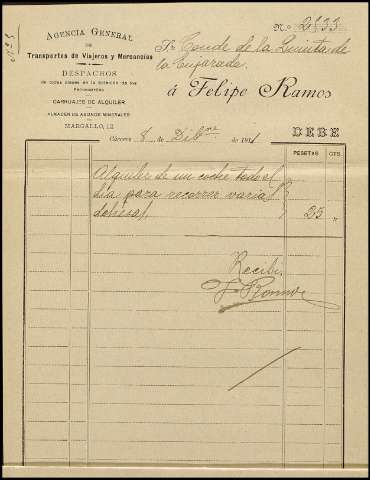 Agencia General
DE
Transportes de Viajeros y Mercancías
DESPACHOS
de todas clases en la Estación de los
Ferrocarriles
CARRUAJES DE ALQUILER
ALMACEN DE AGUAS MINERALES
MARGALLO, 12
N.º 2833
Sr. Conde de la Quinta de
la Enjarada
á Felipe Ramos
Cáceres 8 de Dibre de 1911
DEBE
PESETAS CTS.
Alquiler de un coche todo el
dia para recorrer varias
dehesas 25 "
Recibí
F. Ramos